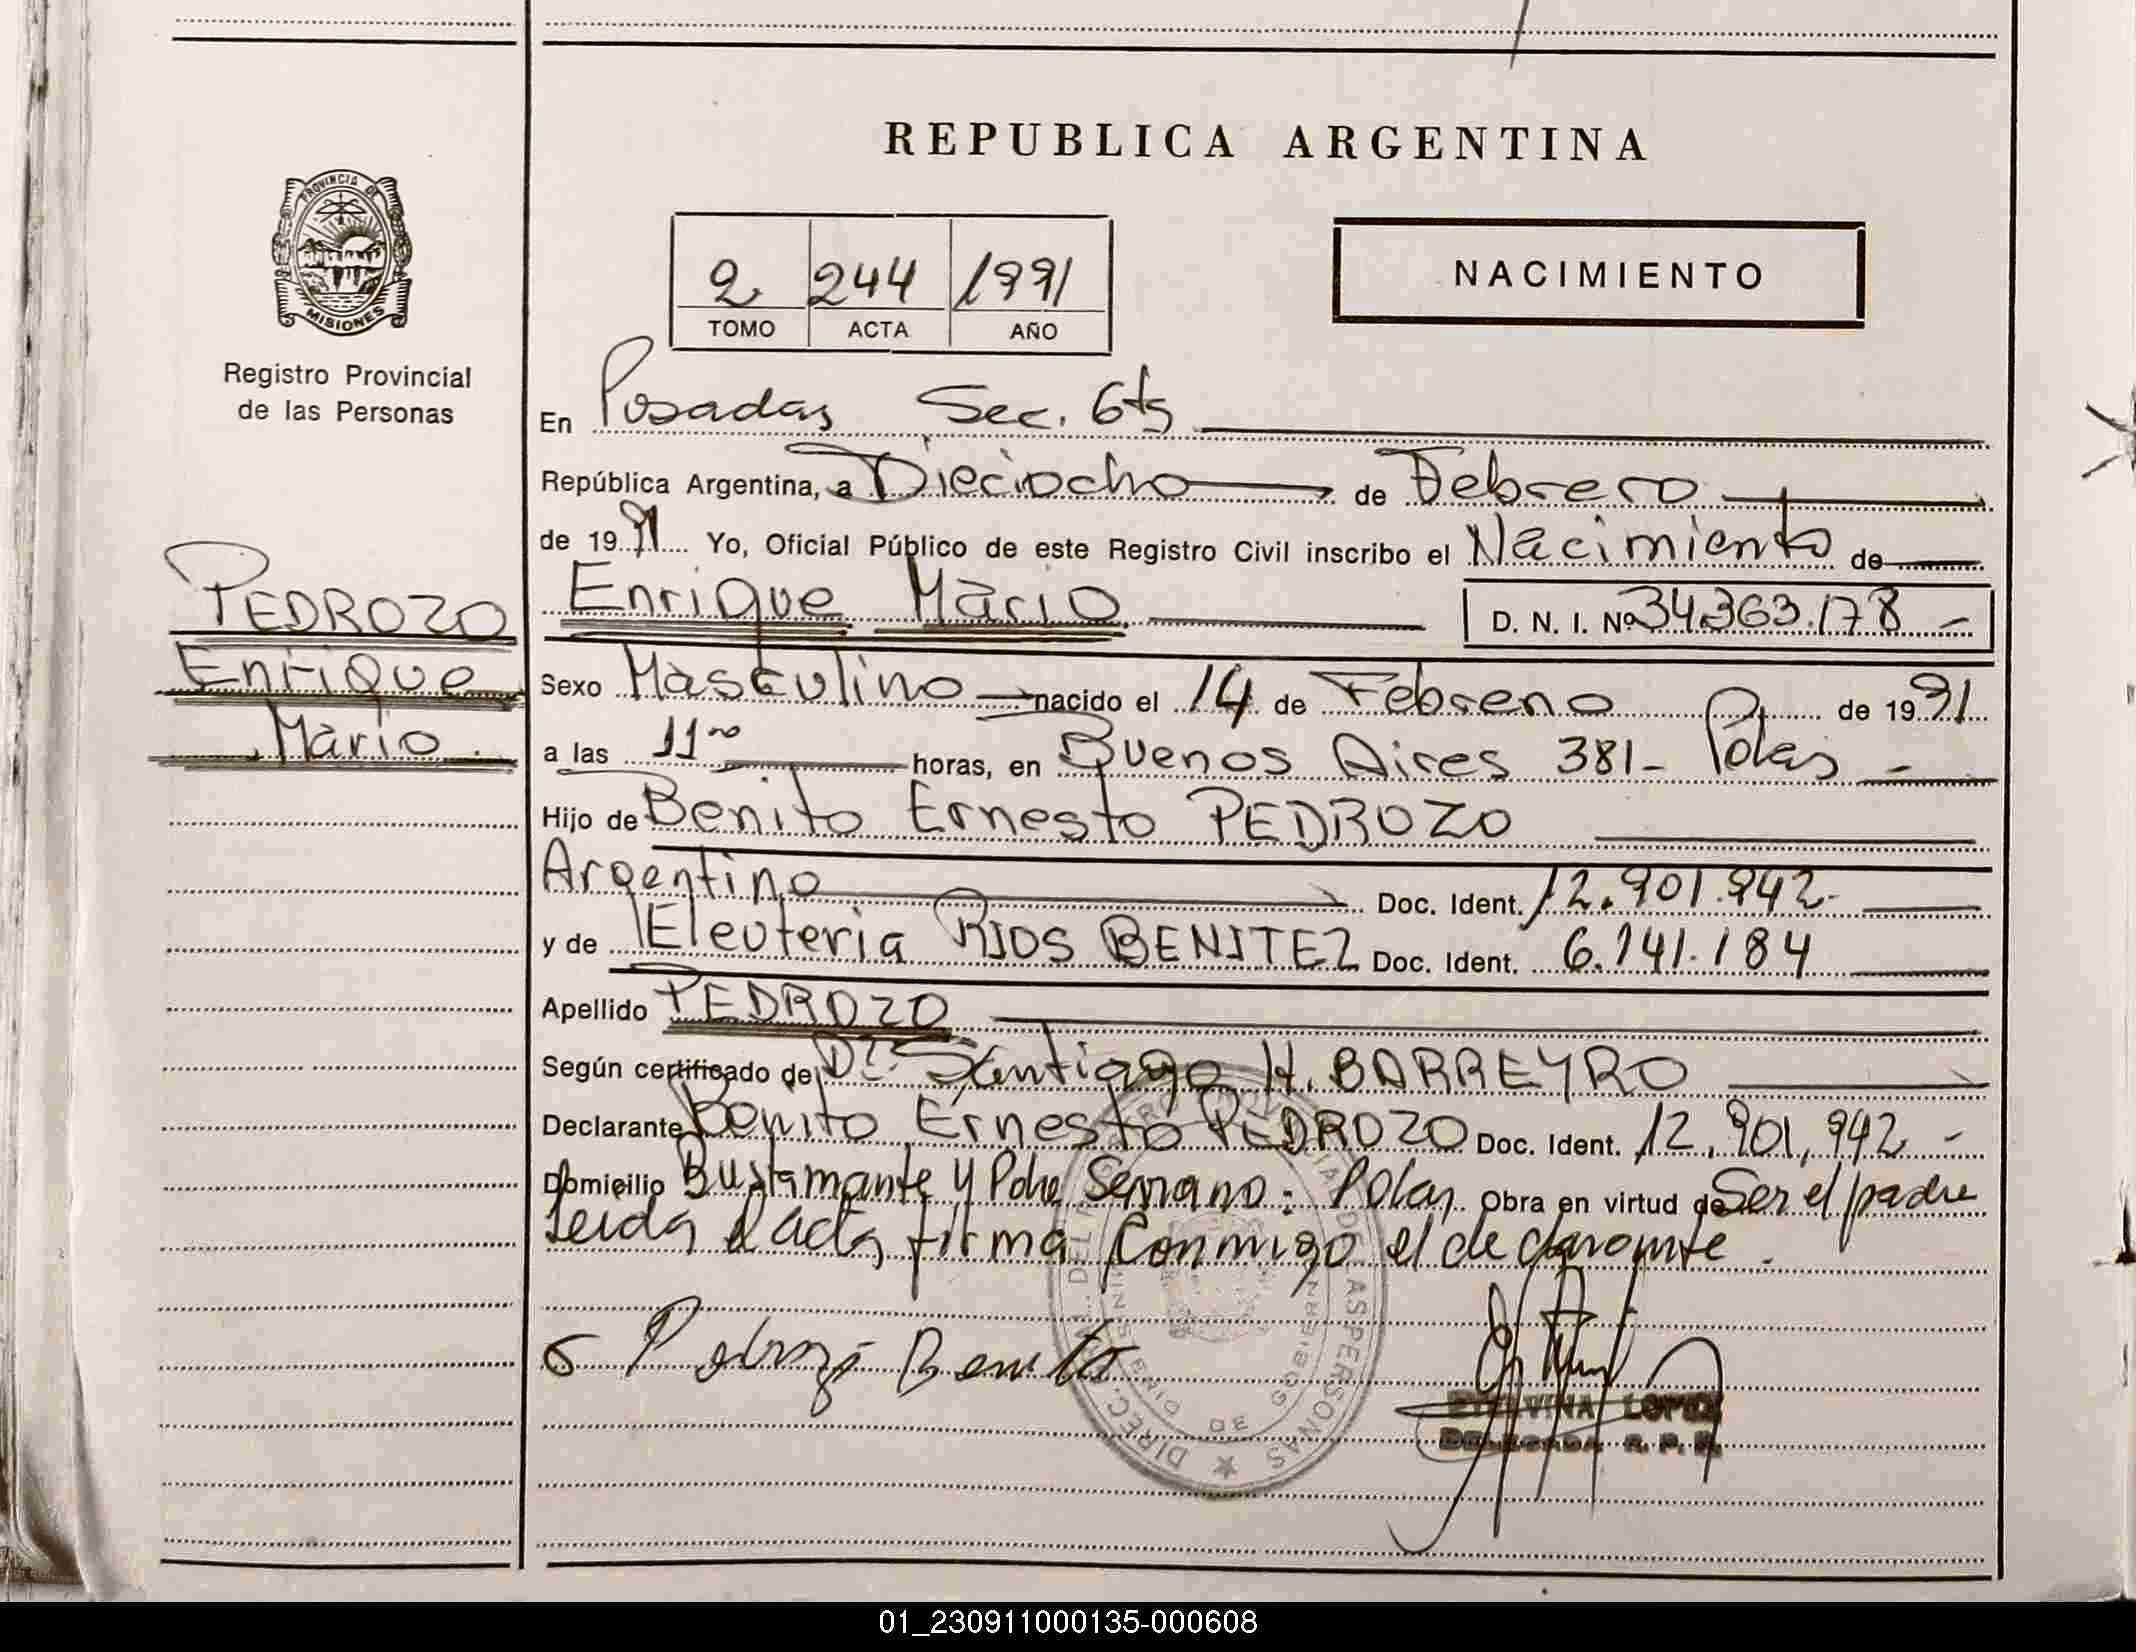 REPUBLICA ARGENTINA
PROVINCIA DE MISIONES
Registro Provincial
de las Personas
2 244 1991
TOMO ACTA AÑO
NACIMIENTO
En Posadas Sec. 6ta
República Argentina, a Dieciocho de Febrero
de 1991 Yo, Oficial Público de este Registro Civil inscribo el Nacimiento de
Enrique Mario D. N. I. Nº 34.363.178 -
PEDROZO
Enrique
Mario
Sexo Masculino nacido el 14 de Febrero de 1991
a las 11 horas, en Buenos Aires 381 - Pdas -
Hijo de Benito Ernesto PEDROZO
Argentino Doc. Ident. 12.901.942 -
y de Eleuteria RIOS BENITEZ Doc. Ident. 6.141.184
Apellido PEDROZO
Según certificado de Dr. Santiago H. BARREYRO
Declarante Benito Ernesto PEDROZO Doc. Ident. 12.901.942 -
Domicilio Bustamante y Serrano - Pdas Obra en virtud de Ser el padre
Leida el acta firma conmigo el declarante.
Pedrozo Benito
ETELVINA LOPEZ
DELEGADA R. P. P.
01_230911000135-000608